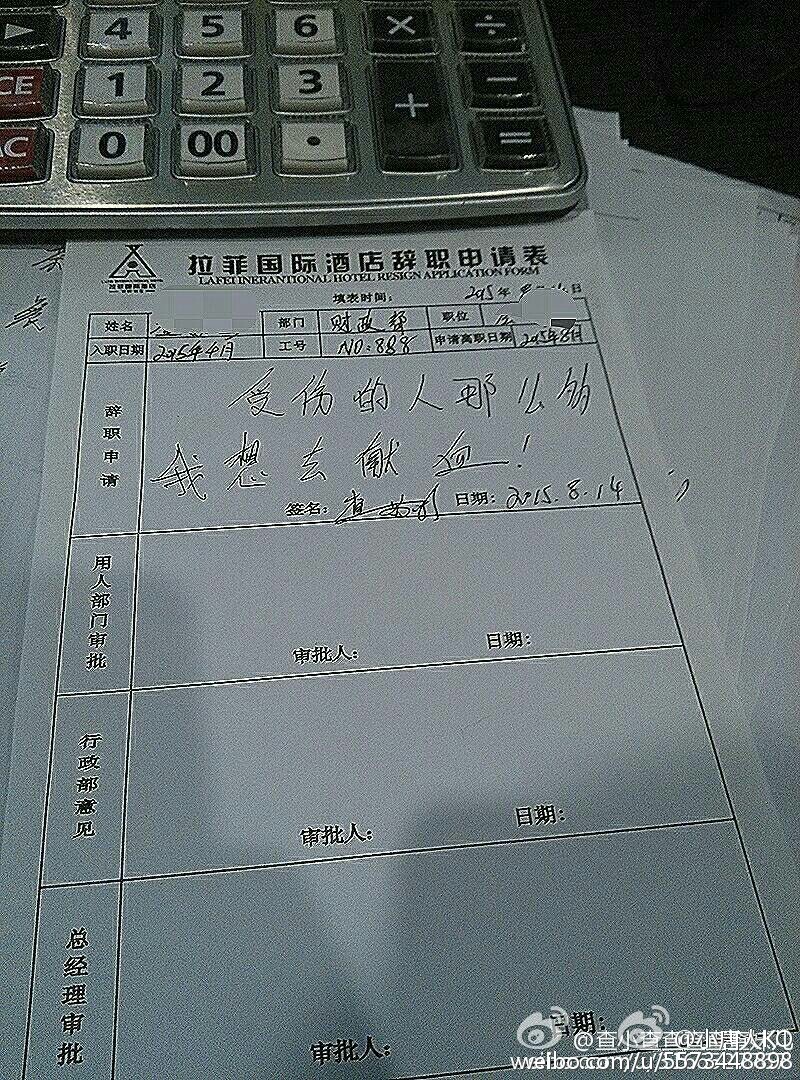 4 5 6 × ÷
CE 1 2 3 + −
AC 0 00 · =
拉菲国际酒店
拉菲国际酒店辞职申请表
LAFEI INERANTIONAL HOTEL RESIGN APPLICATION FORM
填表时间: 2015年8月14日
姓名 部门 财政部 职位
入职日期 2015年4月 工号 NO:888 申请离职日期 2015年8月
辞职申请
受伤的人那么多
我想去献血!
签名: 日期: 2015.8.14
用人部门审批
审批人: 日期:
行政部意见
审批人: 日期:
总经理审批
审批人: 日期:
@查小查查
weibo.com/u/5573448898